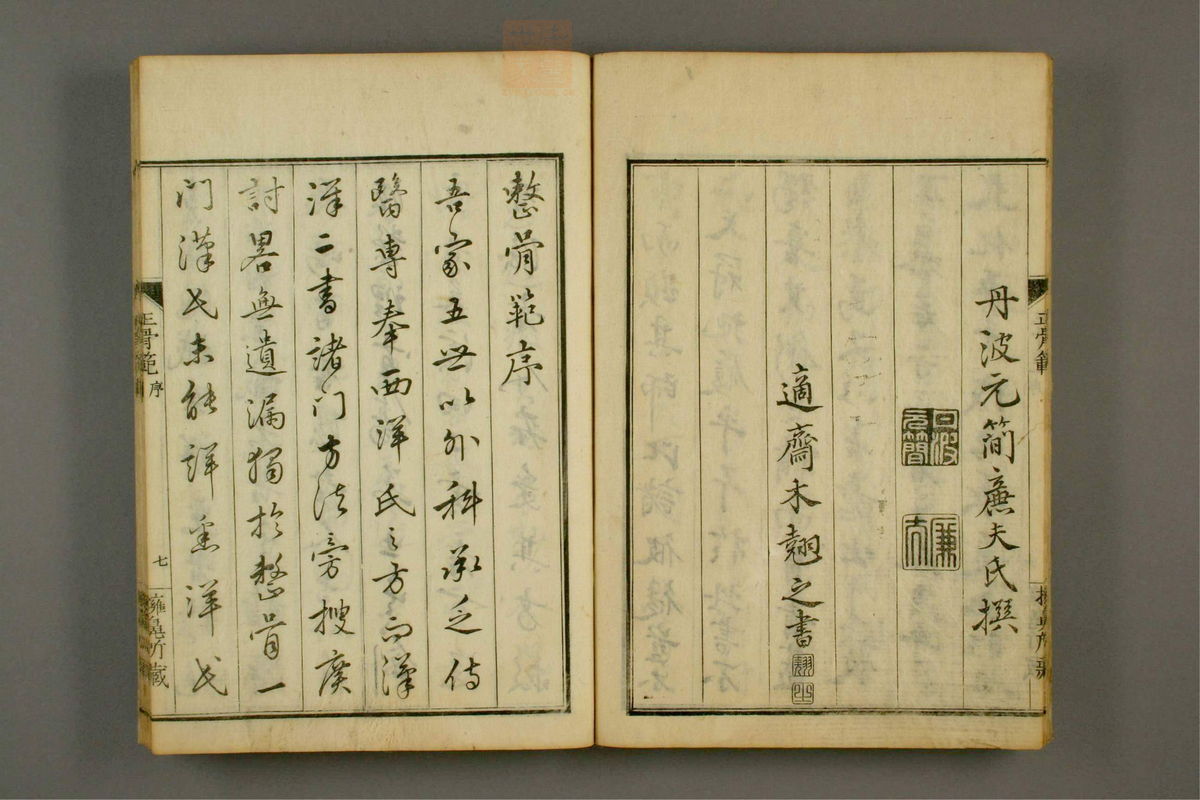 丹波元簡廉夫氏撰
適齋木翹之書
正骨範
整骨範序
吾家五世以外科承乏侍
醫專奉西洋氏之方而漢
洋二書諸门方法旁搜廣
討畧無遺漏獨於整骨一
门漢氏未能詳悉洋氏
正骨範 序
七